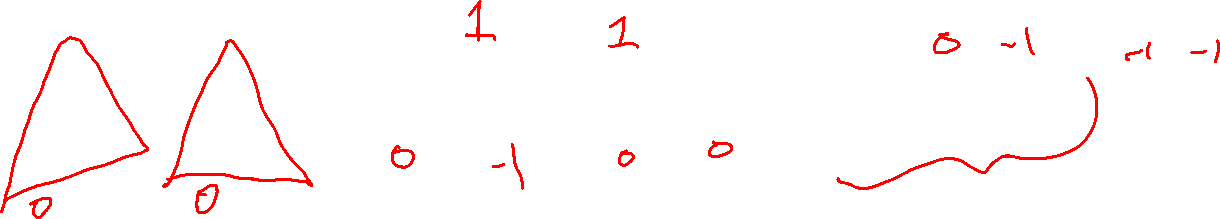 1 1 0 -1 -1 -1
0 -1 0 0
0 0